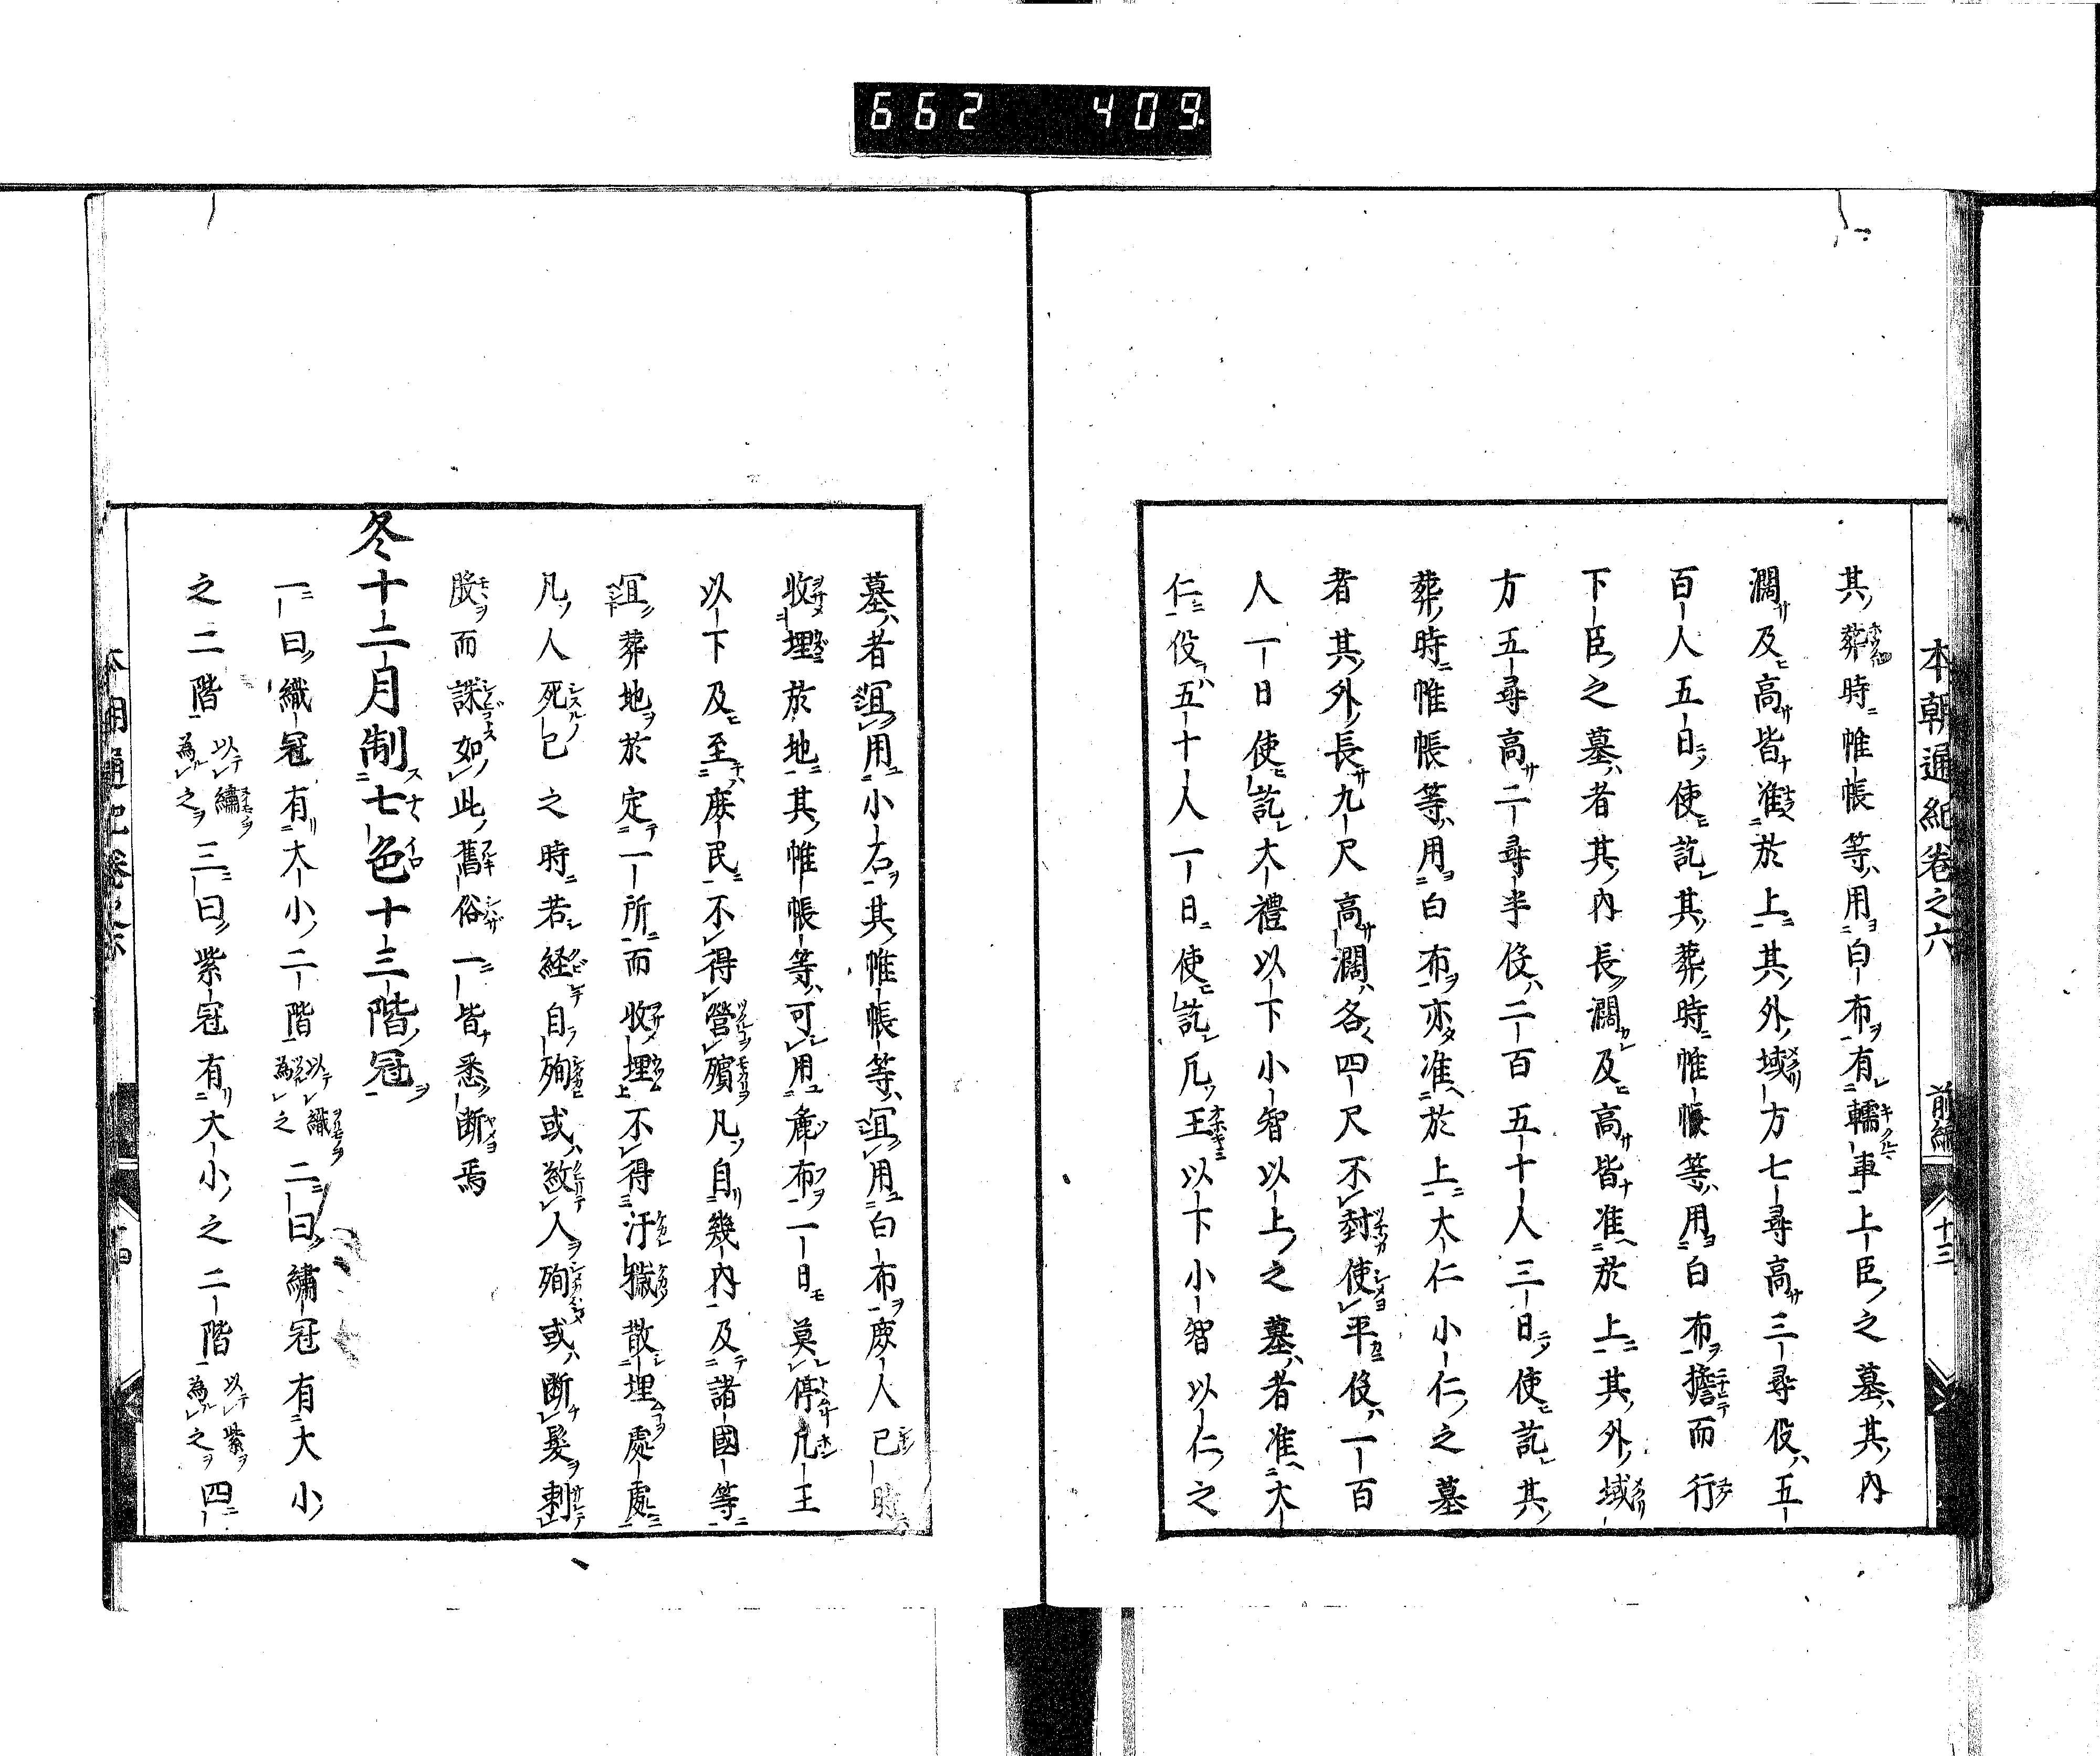 662 409
本朝通紀卷之六 前編 十三
其葬時帷帳等用白布有轜車上臣之墓其內
濶及高皆准於上其外域方七尋高三尋役五
百人五日使訖其葬時帷帳等用白布擔而行
下臣之墓者其內長濶及高皆准於上其外域
方五尋高二尋半役二百五十人三日使訖其
葬時帷帳等用白布亦准於上大仁小仁之墓
者其外長九尺高濶各四尺不封使平役一百
人一日使訖大禮以下小智以上之墓者准大
仁役五十人一日使訖凡王以下小智以仁之
墓者宜用小石其帷帳等宜用白布庶人已時
收埋於地其帷帳等可用麁布一日莫停凡王
以下及至庶民不得營殯凡自幾內及諸國等
宜葬地於定一所而收埋不得汙穢散埋處處
凡人死已之時若経自殉或敎人殉或断髮刺
股而誄如此舊俗一皆悉断焉
冬十二月制七色十三階冠
一曰織冠有大小二階以織為之二曰繡冠有大小
之二階以繡為之三曰紫冠有大小之二階以紫為之四
本朝通紀卷之六 十四